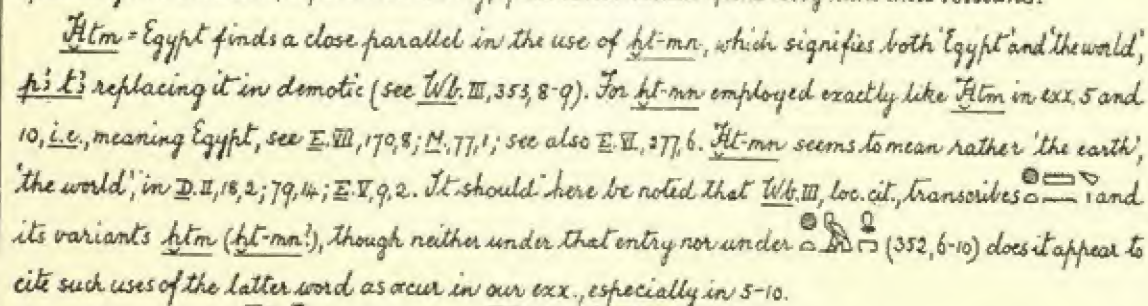 Ḫtm = Egypt finds a close parallel in the use of ḫt-mn, which signifies both 'Egypt' and 'the world',
pꜣ tꜣ replacing it in demotic (see Wb. III, 353, 8-9). For ḫt-mn employed exactly like Ḫtm in exx. 5 and
10, i.e., meaning Egypt, see E. VIII, 170, 8; M. 77, 1; see also E. VI, 277, 6. Ḫt-mn seems to mean rather 'the earth',
'the world', in D. II, 18, 2; 79, 14; E. V, 9, 2. It should here be noted that Wb. III, loc. cit., transcribes and
its variants ḫtm (ḫt-mn?), though neither under that entry nor under (352, 6-10) does it appear to
cite such uses of the latter word as occur in our exx., especially in 5-10.